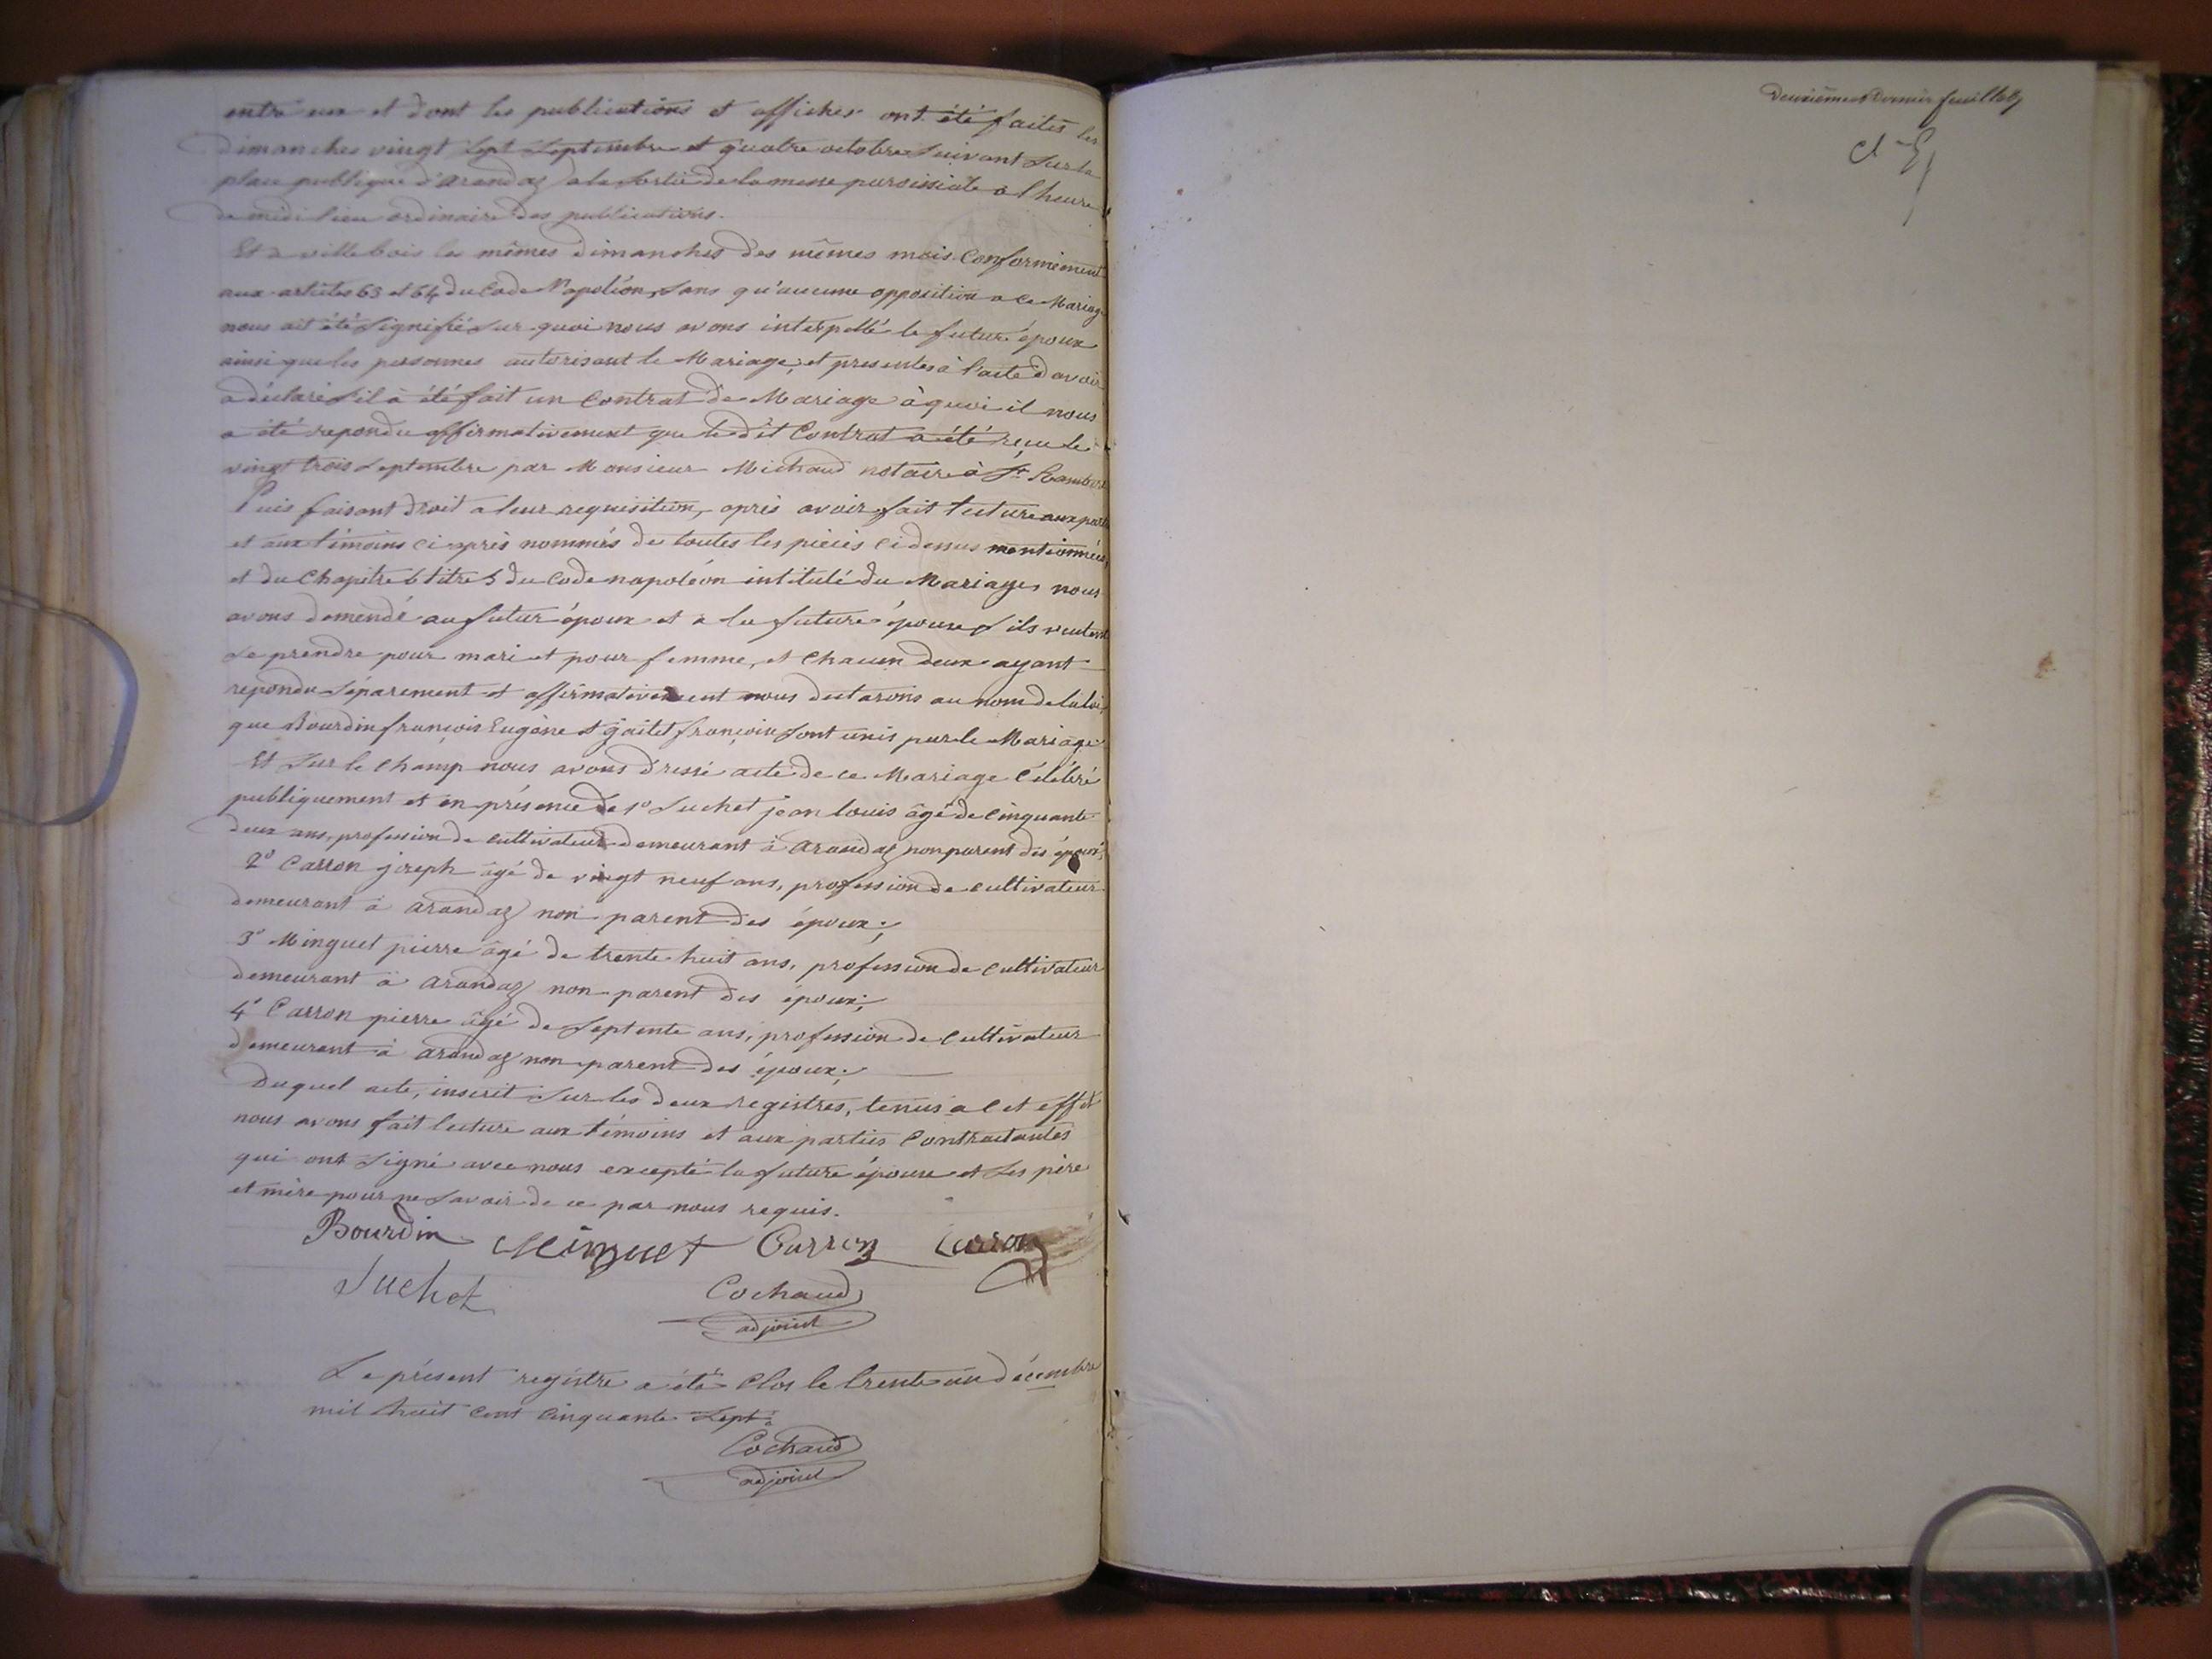 entre eux et dont les publications et affiches ont été faites les
Dimanches vingt sept Septembre et quatre octobre Suivant Sur la
place publique d'Arandaz a la Sortie de la messe paroissiale à l'heure
de midi lieu ordinaire des publications.
Et a villebois les mêmes Dimanches des mêmes mois Conformément
aux articles 63 et 64 du Code Napoléon, Sans qu'aucune opposition a ce Mariage
nous ait été Signifié Sur quoi nous avons interpellé le futur époux
ainsi que les personnes autorisant le Mariage, et presentes à l'acte d'avoir
a déclaré S'il à été fait un Contrat de Mariage à quoi il nous
a été repondu affirmativement que le dit Contrat a été reçu le
vingt trois Septembre par Monsieur Michaud notaire à St. Rambert
Puis faisant Droit a leur requisition, après avoir fait lecture aux parties
et aux témoins ci-après nommés de toutes les pièces ci dessus mentionnées,
et du Chapitre 6 titre 5 du Code napoléon intitulé du Mariage, nous
avons demendé au futur époux et a la future épouse S'ils veulent
Se prendre pour mari et pour femme, et Chacun deux ayant
repondu Séparement et affirmativement nous declarons au nom de la loi,
que Bourdin françois Eugène et gaitet françoise Sont unis par le Mariage
Et Sur le Champ nous avons dressé acte de ce Mariage Célébré
publiquement et en présence de 1° Suchet jean louis âgé de Cinquante
deux ans, profession de Cultivateur demeurant à Arandaz non parent des époux,
2° Carron joseph âgé de vingt neuf ans, profession de Cultivateur
demeurant à Arandaz non parent des époux;
3° Minguet pierre âgé de trente huit ans, profession de Cultivateur
demeurant à Arandaz non parent des époux;
4° Carron pierre âgé de Septente ans, profession de Cultivateur
demeurant à Arandaz non parent des époux;
Duquel acte, inscrit Sur les deux registres, tenus a Cet effet
nous avons fait lecture aux témoins et aux parties Contractantes
qui ont Signé avec nous excepté la future épouse et Ses père
et mère pour ne Savoir de ce par nous requis.
Bourdin Minguet Carron Carron
Suchet Cochaud
adjoint
Le présent registre a été Clos le trente un décembre
mil huit Cent Cinquante Sept.
Cochaud
adjoint
Deuxième et Dernier feuillet